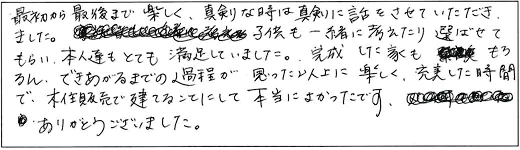 最初から最後まで楽しく、真剣な時は真剣に話をさせていただき
ました。子供も一緒に考えたり選ばせて
もらい、本人達もとても満足していました。完成した家ももち
ろん、できあがるまでの過程が思った以上に楽しく、充実した時間
で、木住販売で建てることにして本当によかったです。
ありがとうございました。